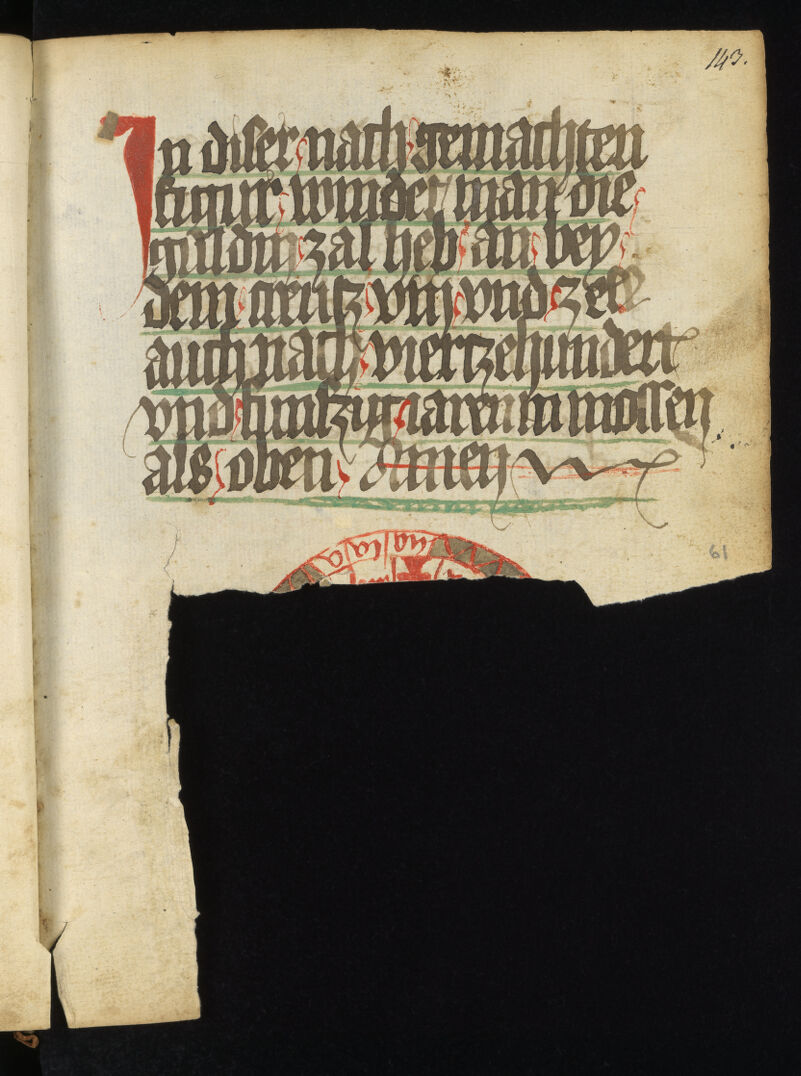 143.
In diser nach gemachten
figur windet man die
guldin zal heb an bey
dem creutz vnd zell
auch nach viertzehundert
vnd funftzig iaren in mossen
als oben Amen
61